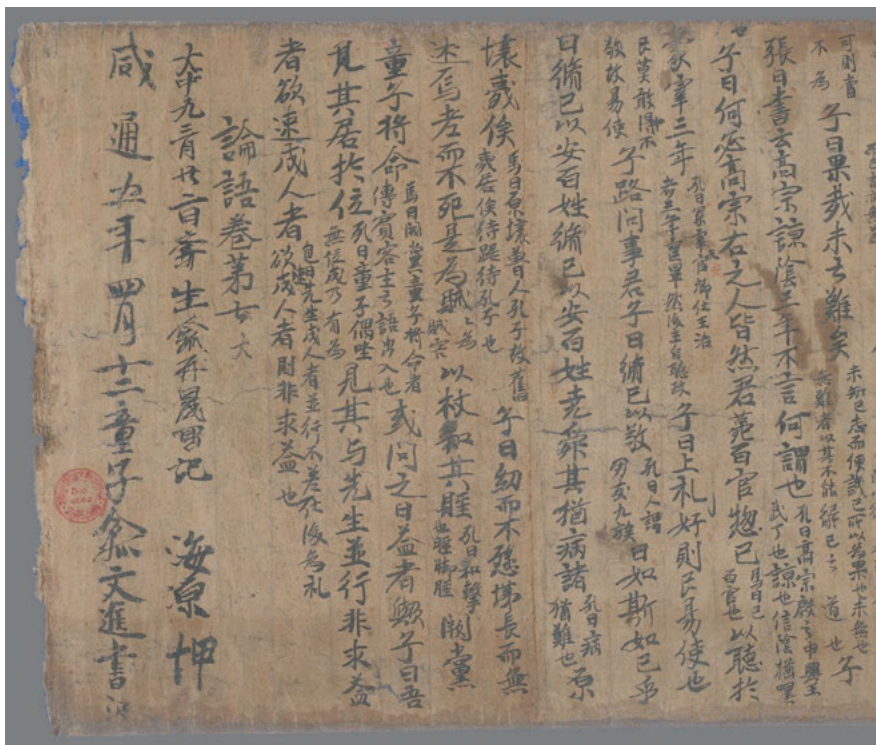 可則當不為子曰果哉末之難矣未知己志而便譏己所以為果也末無也無難者以其不能解己之道也子
張曰書云高宗諒陰三年不言何謂也孔曰高宗殷之中興王武丁也諒也信陰猶嘿
子曰何必高宗古之人皆然君薨百官惣己馬曰己百官也以聽於
冢宰三年孔曰冢宰官卿仕王治者三年喪畢然後王自聽政子曰上礼好則民易使也
民莫敢不敬故易使子路問事君子曰脩己以敬孔曰人謂朋友九族曰如斯如已乎
曰脩己以安百姓脩己以安百姓堯舜其猶病諸孔曰病猶難也原
壤夷俟馬曰原壤魯人孔子故舊夷居俟待踞待孔子也子曰幼而不愻悌長而無
述焉老而不死是為賊為賊害以杖叩其脛孔曰叩擊也脛脚脛闕黨
童子將命馬曰闕黨童子將命者傳賓客主之語出入也或問之曰益者歟子曰吾
見其居於位孔曰童子偶坐無位成乃有為見其与先生並行非求益
者欲速成人者包曰先生成人者並行不差在後為礼欲成人者則非求益也
論語卷第七
大中九三月廿一日學生令狐再晟記 海原押
咸通五年四月十二童子令狐文進書記